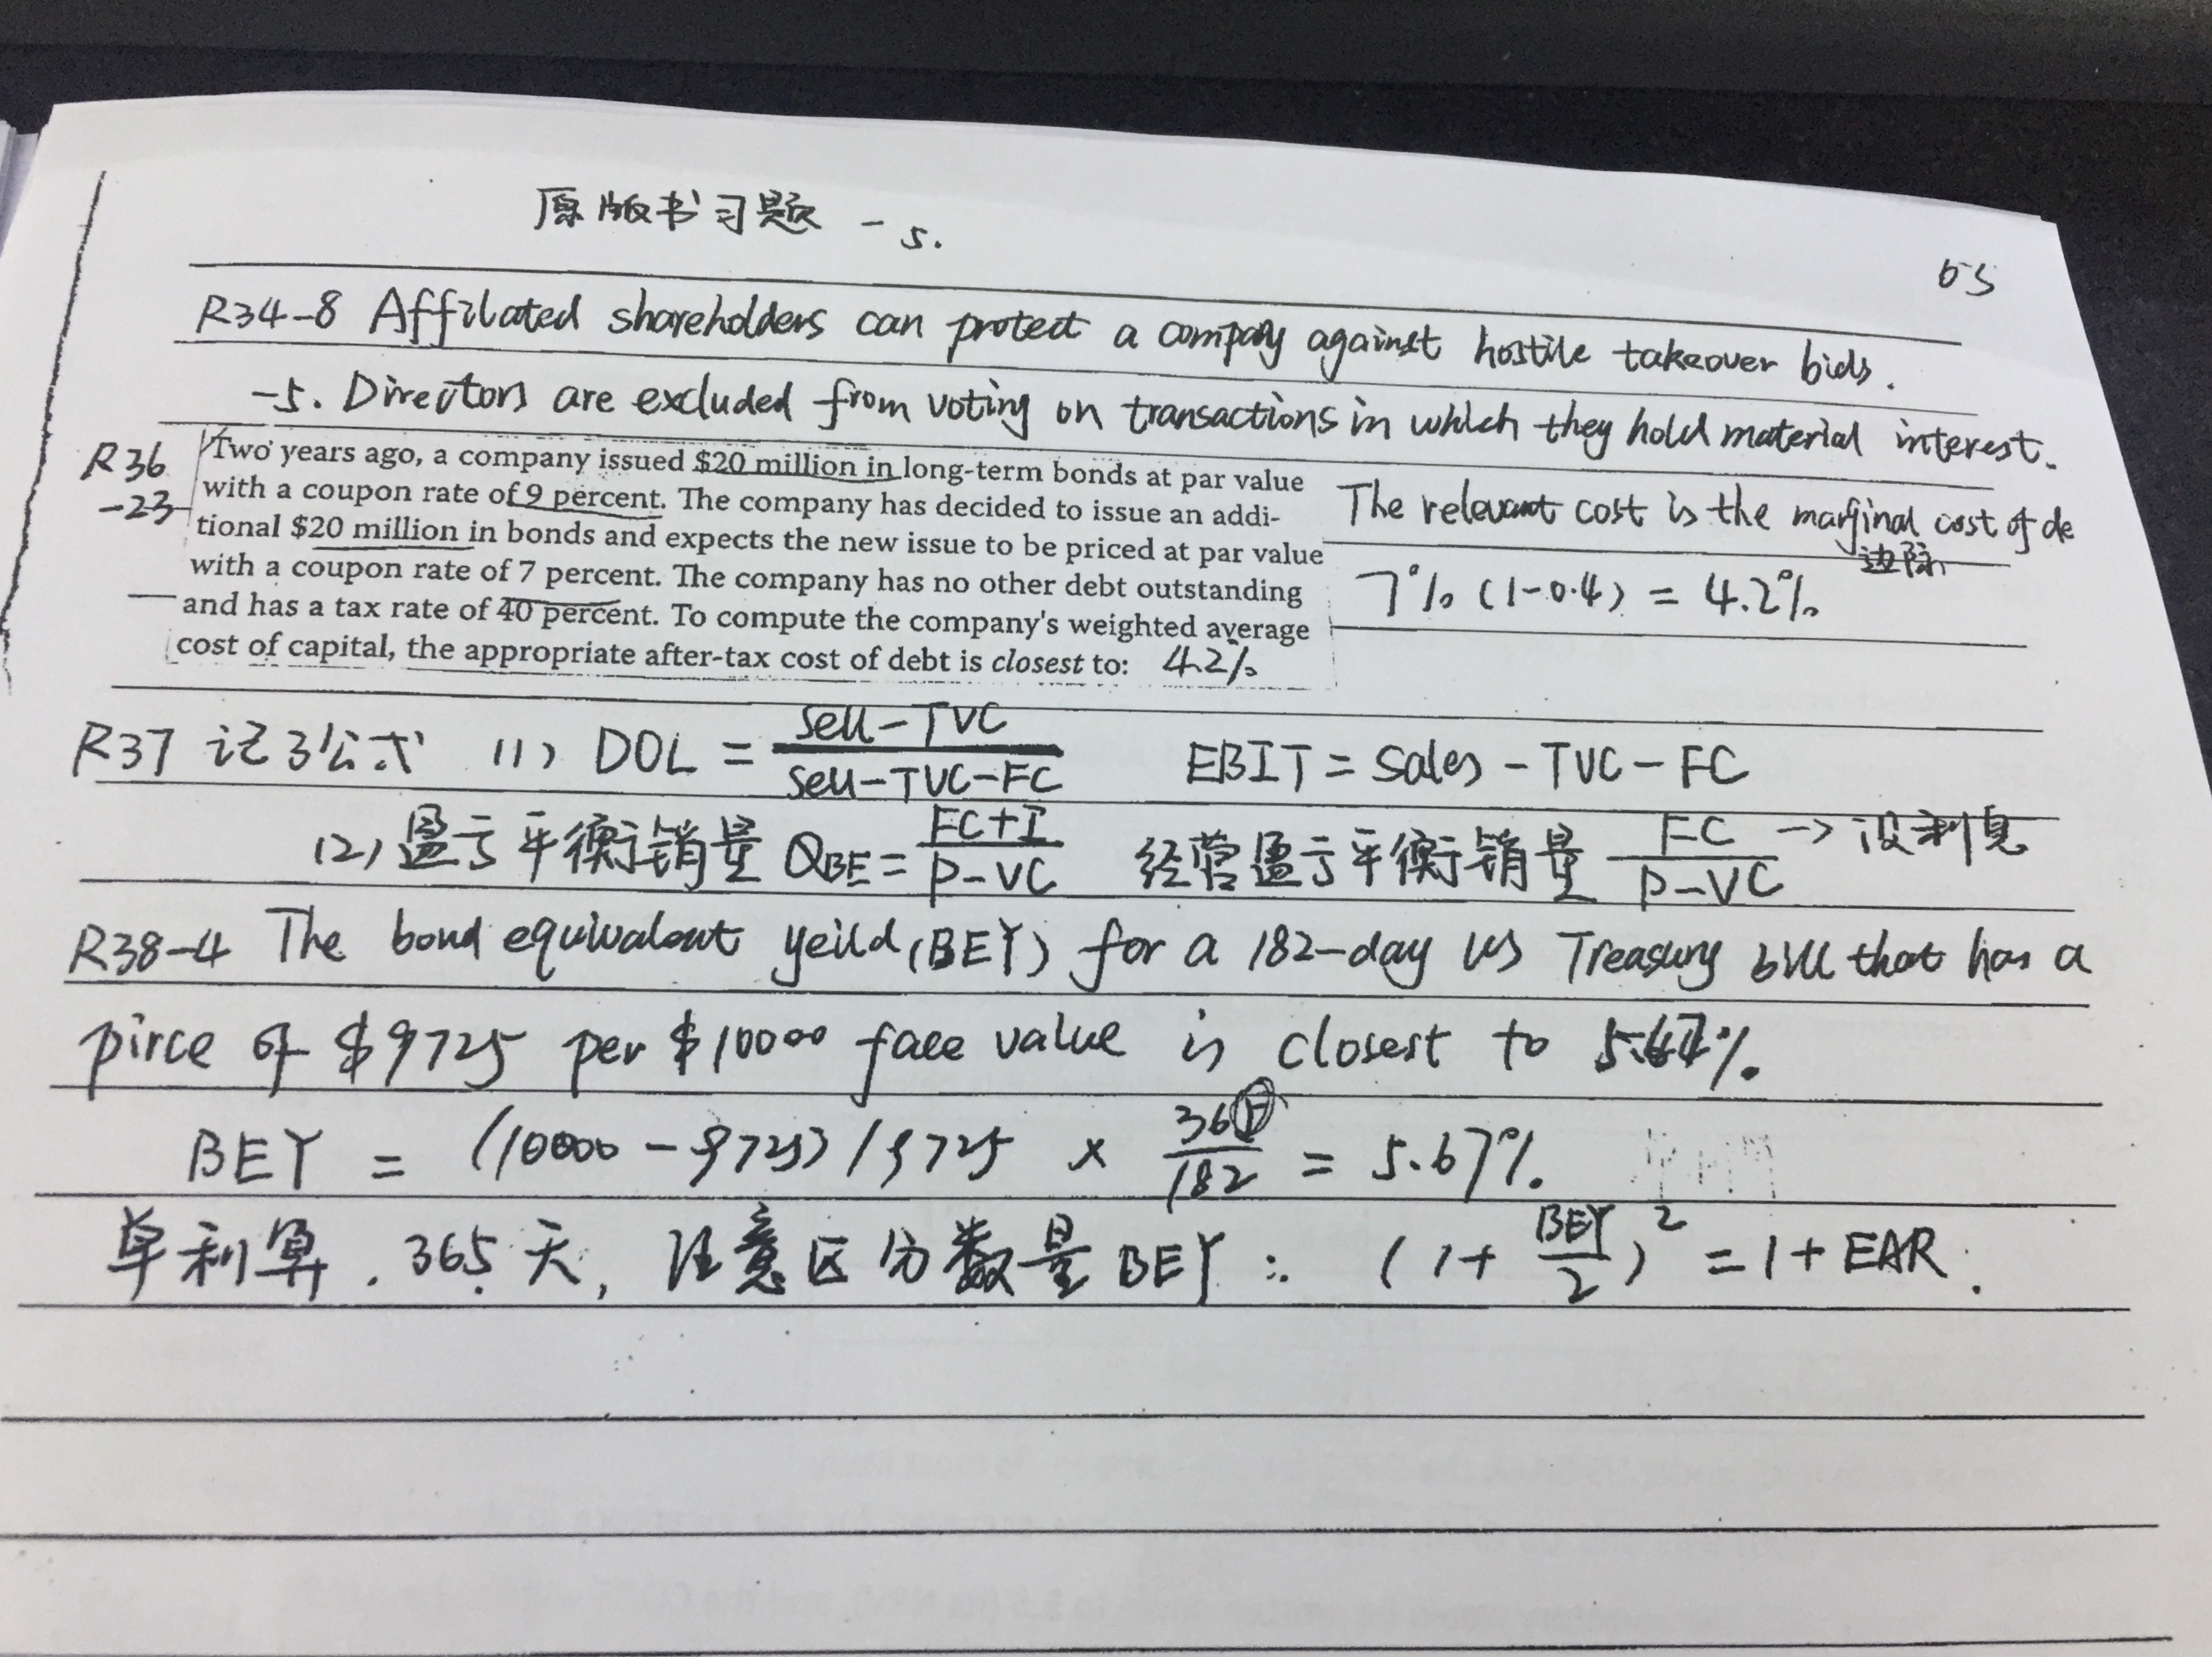 原版书习题 - 5.
R34-8 Affilated shareholders can protect a company against hostile takeover bids.
-5. Directors are excluded from voting on transactions in which they hold material interest.
R36
-23
Two years ago, a company issued $20 million in long-term bonds at par value
with a coupon rate of 9 percent. The company has decided to issue an addi-
tional $20 million in bonds and expects the new issue to be priced at par value
with a coupon rate of 7 percent. The company has no other debt outstanding
and has a tax rate of 40 percent. To compute the company's weighted average
cost of capital, the appropriate after-tax cost of debt is closest to: 4.2%
The relevant cost is the marginal cost of de
边际
7% (1-0.4) = 4.2%
R37 记3公式 (1) DOL = (Sell-TVC)/(Sell-TVC-FC) EBIT = Sales - TVC - FC
(2) 盈亏平衡销量 QBE = (FC+I)/(P-VC) 经营盈亏平衡销量 FC/(P-VC) → 没利息
R38-4 The bond equivalent yeild (BEY) for a 182-day US Treasury bill that has a
pirce of $9725 per $10000 face value is closest to 5.67%.
BEY = (10000-9725)/9725 × 365/182 = 5.67%.
单利算. 365天, 注意区分数量BEY: (1+BEY/2)² = 1+EAR.